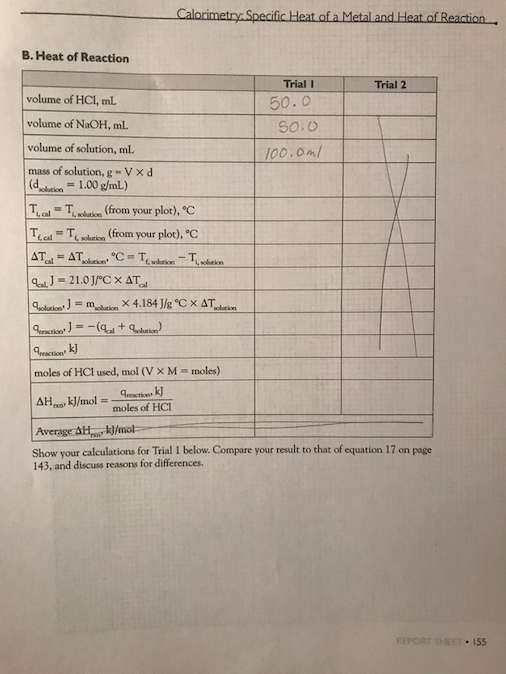 Calorimetry: Specific Heat of a Metal and Heat of Reaction
B. Heat of Reaction
Trial 1 Trial 2
volume of HCl, mL 50.0
volume of NaOH, mL 50.0
volume of solution, mL 100.0ml
mass of solution, g = V × d
(d solution = 1.00 g/mL)
T i, cal = T i, solution (from your plot), °C
T f, cal = T f, solution (from your plot), °C
ΔT cal = ΔT solution, °C = T f, solution − T i, solution
q cal, J = 21.0 J/°C × ΔT cal
q solution, J = m solution × 4.184 J/g °C × ΔT solution
q reaction, J = −(q cal + q solution)
q reaction, kJ
moles of HCl used, mol (V × M = moles)
ΔH rxn, kJ/mol = q reaction, kJ
moles of HCl
Average ΔH rxn, kJ/mol
Show your calculations for Trial 1 below. Compare your result to that of equation 17 on page
143, and discuss reasons for differences.
REPORT SHEET • 155